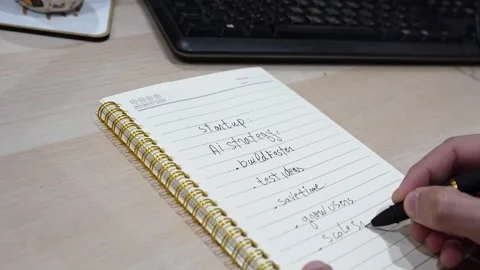 startup.
AI strategy.
• build faster
• test ideas
• save time
• grow users
• scale s